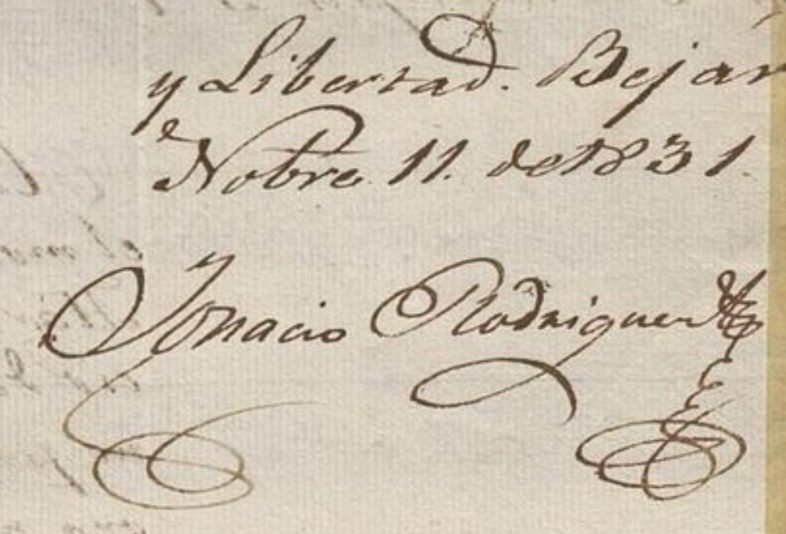 y Libertad. Bejár
Nobre 11. de 1831.
Ignacio Rodriguez